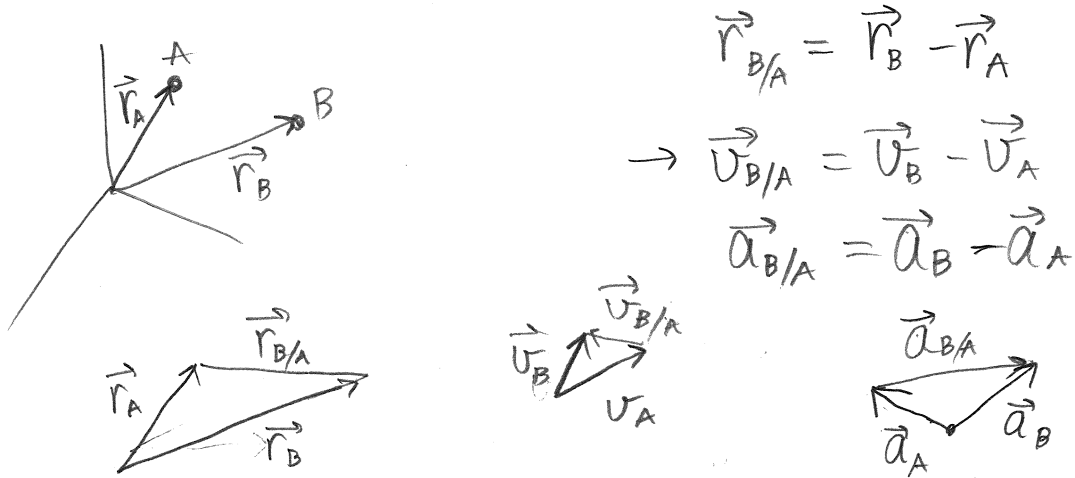 A
r⃗_A
B
r⃗_B
r⃗_{B/A} = r⃗_B - r⃗_A
→ v⃗_{B/A} = v⃗_B - v⃗_A
a⃗_{B/A} = a⃗_B - a⃗_A
r⃗_{B/A}
r⃗_A
r⃗_B
v⃗_{B/A}
v⃗_B
v_A
a⃗_{B/A}
a⃗_A
a⃗_B